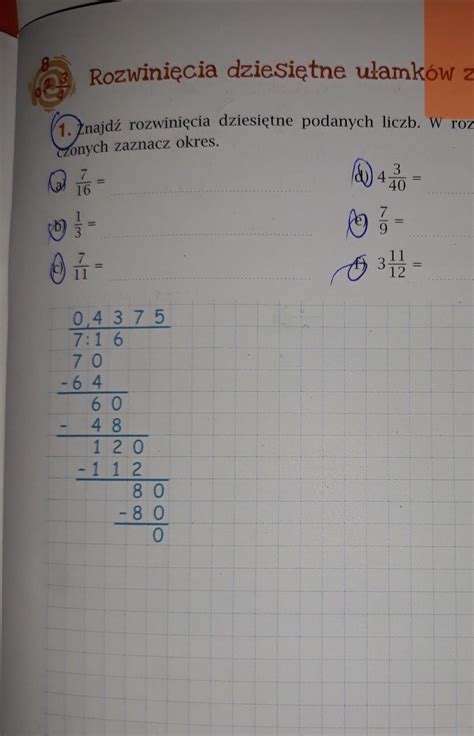 8 3 9
Rozwinięcia dziesiętne ułamków z
1. Znajdź rozwinięcia dziesiętne podanych liczb. W roz
czonych zaznacz okres.
a) 7/16 =
b) 1/3 =
c) 7/11 =
d) 4 3/40 =
e) 7/9 =
f) 3 11/12 =
0,4 3 7 5
7:1 6
7 0
-6 4
6 0
- 4 8
1 2 0
-1 1 2
8 0
-8 0
0